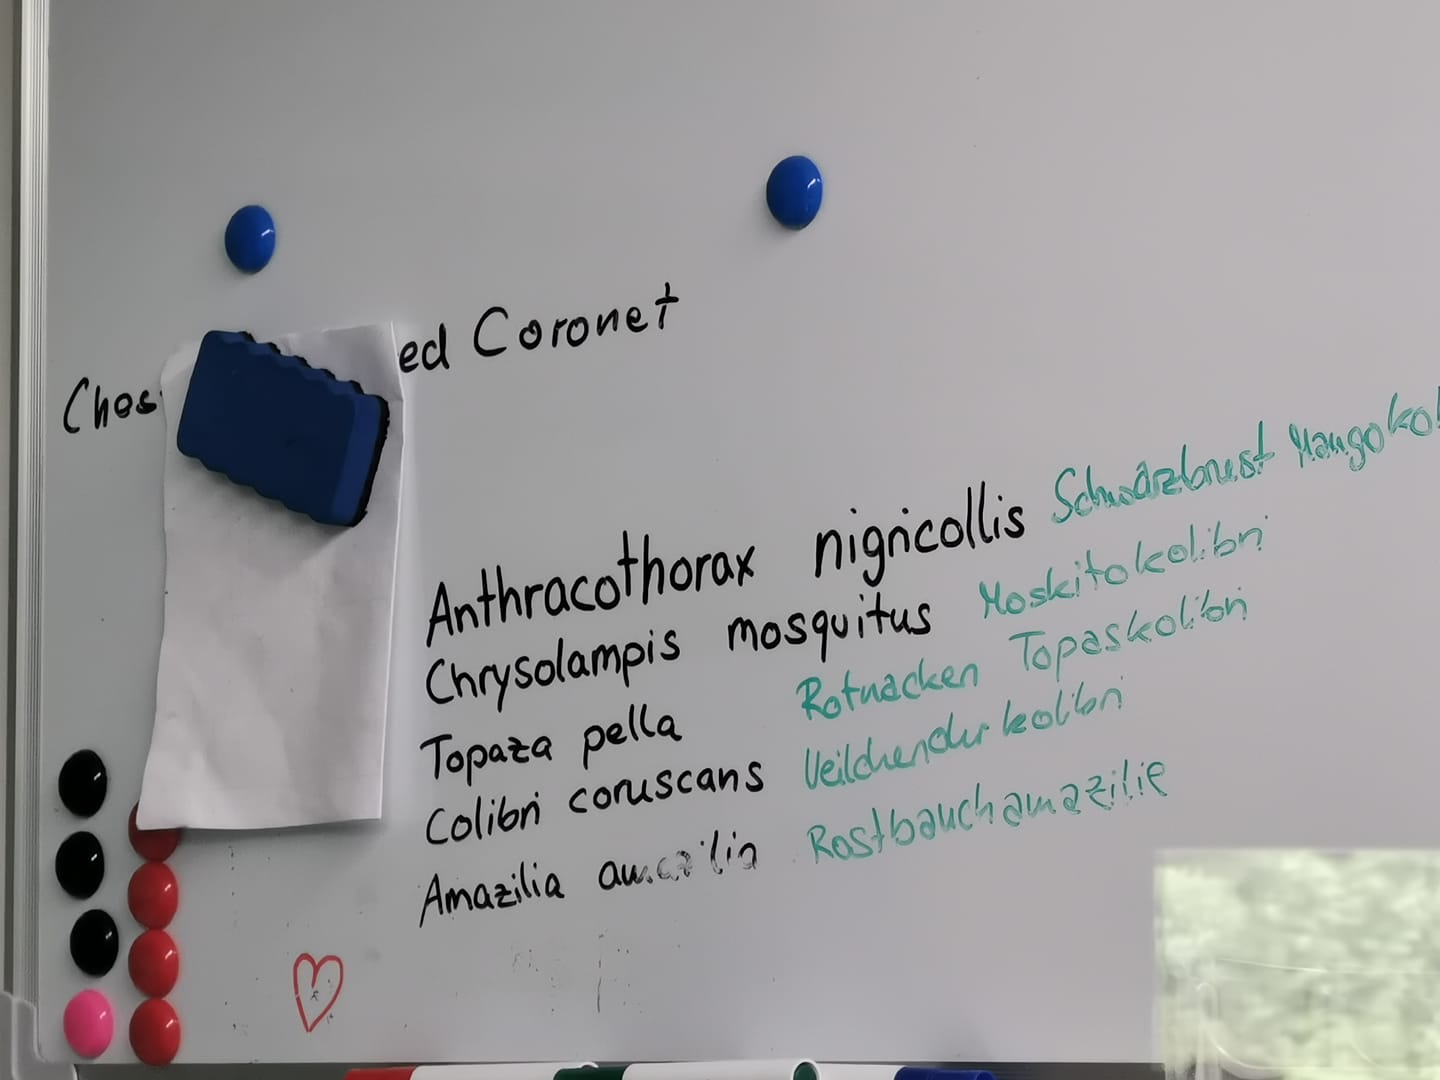 Ches ed Coronet
Anthracothorax nigricollis Schwarzbrust Mangokol
Chrysolampis mosquitus Moskitokolibri
Topaza pella Rotnacken Topaskolibri
Colibri coruscans Veilchenohrkolibri
Amazilia Rostbauchamazilie